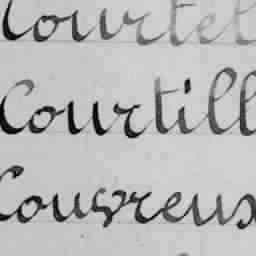 Courtel
Courtill
Couvreux